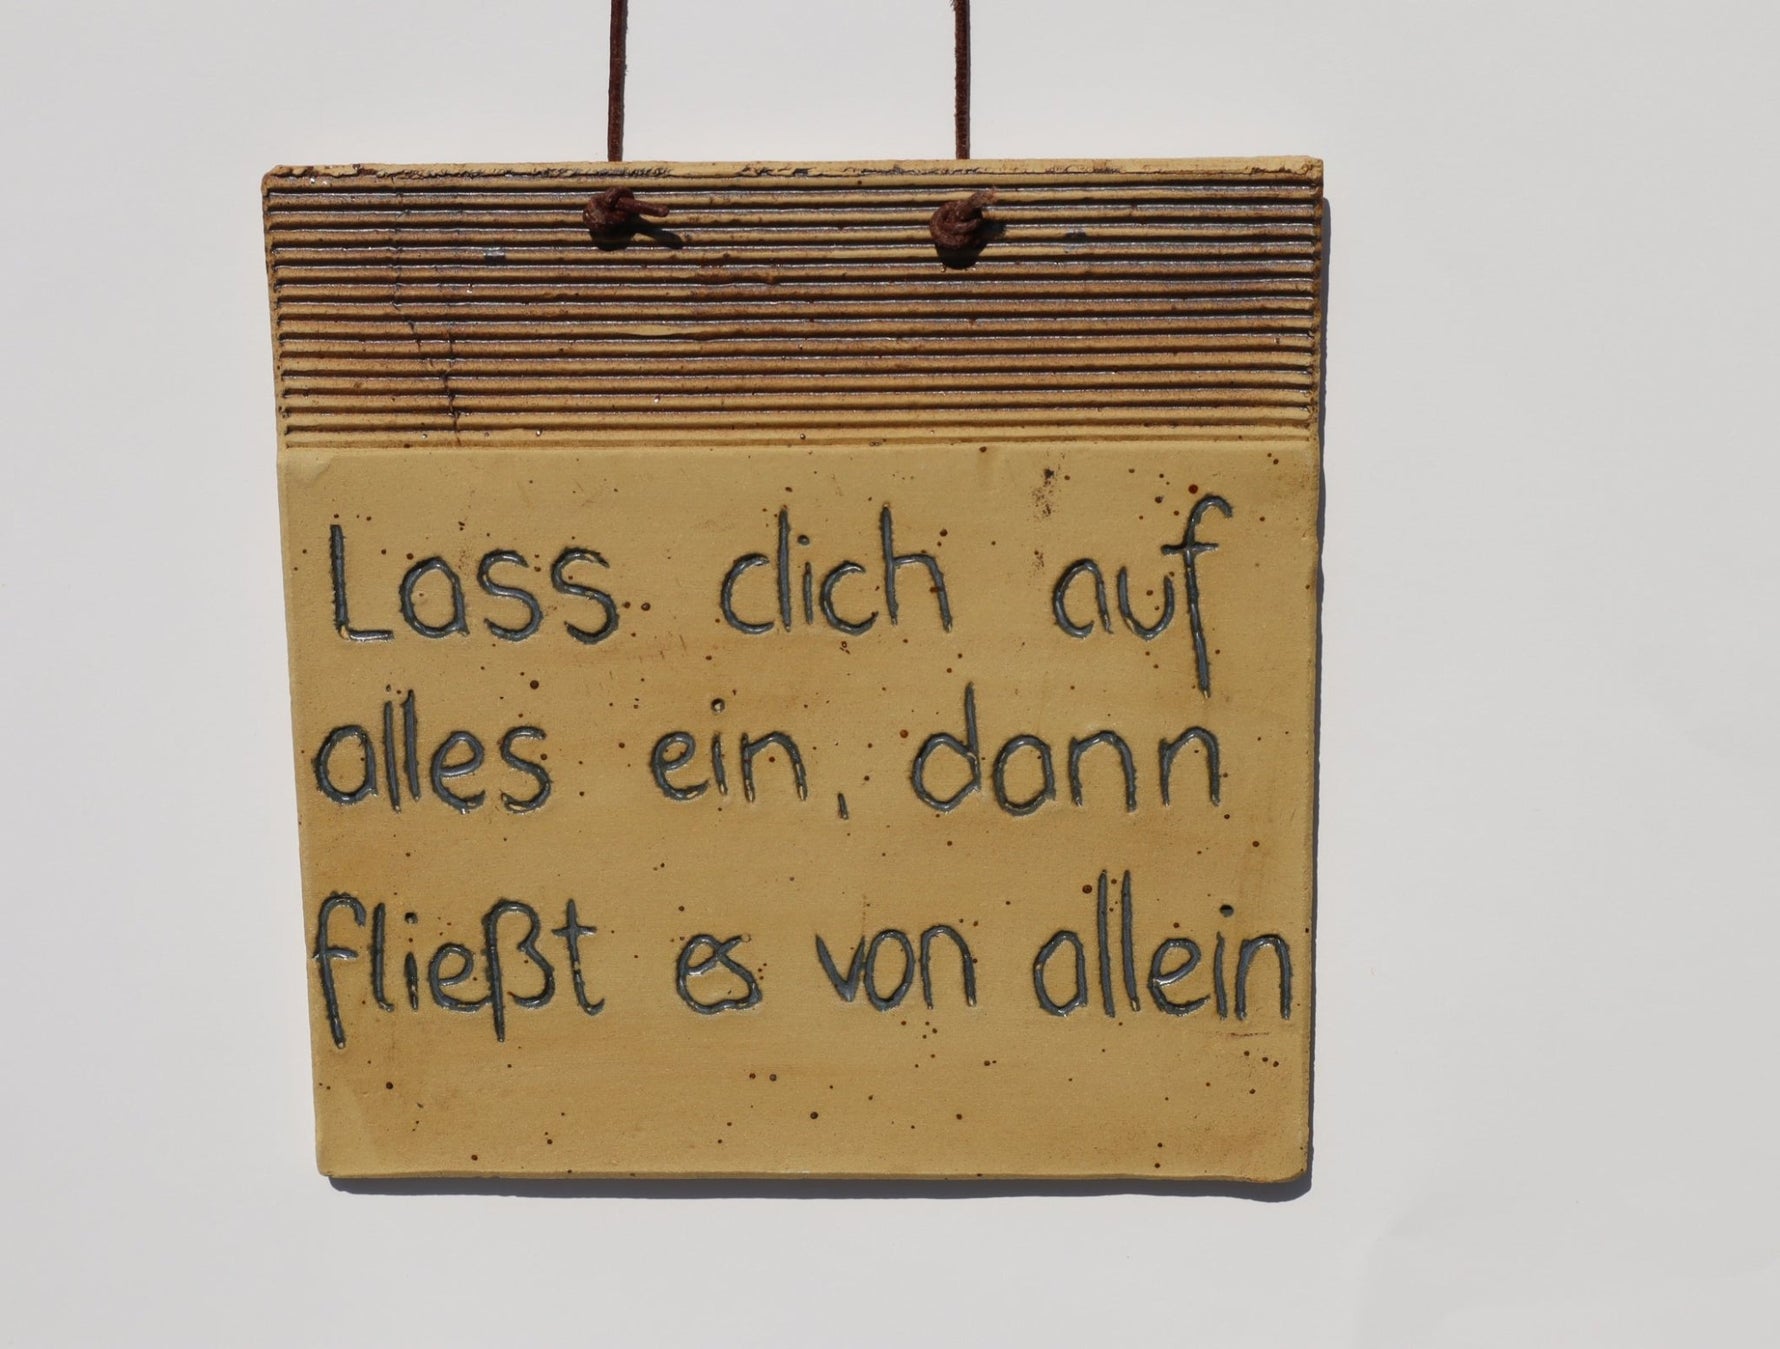 Lass dich auf
alles ein, dann
fließt es von allein